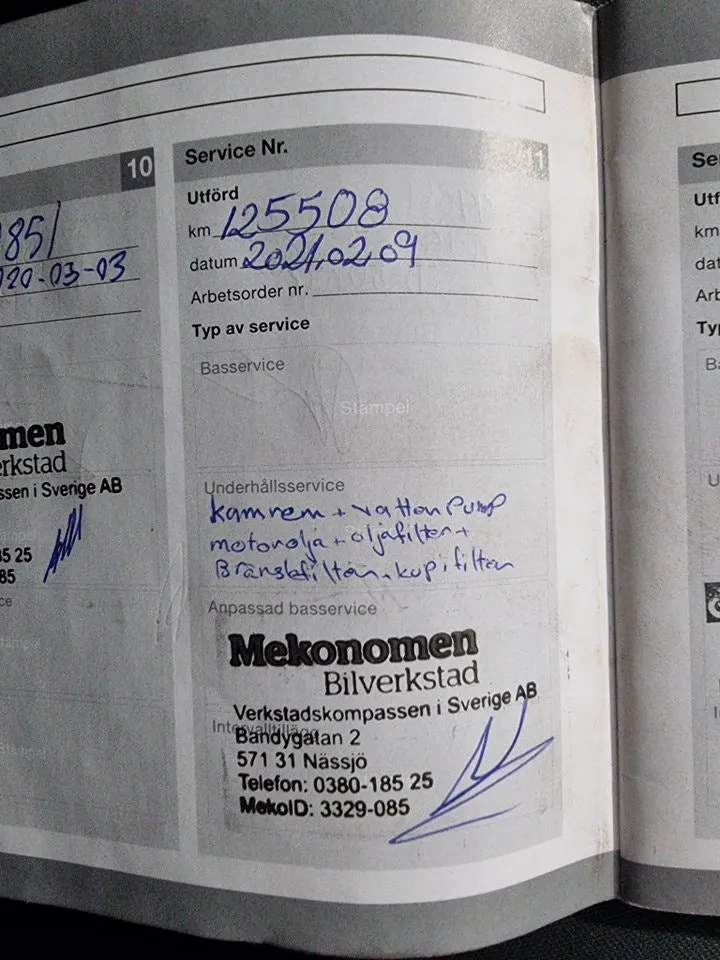 10
851
020-03-03
men
erkstad
ssen i Sverige AB
85 25
85
ce
Stämpel
Stämpel
Service Nr. 11
Utförd
km 125508
datum 2021.02.09
Arbetsorder nr.
Typ av service
Basservice
Stämpel
Underhållsservice
kamrem + vatten Pump
motorolja + oljafilter +
Bränslefilter. kupifilter
Anpassad basservice
Mekonomen
Bilverkstad
Verkstadskompassen i Sverige AB
Intervalltillägg
Bandygatan 2
571 31 Nässjö
Telefon: 0380-185 25
MekoID: 3329-085
Se
Utf
km
dat
Arb
Ty
Ba
U